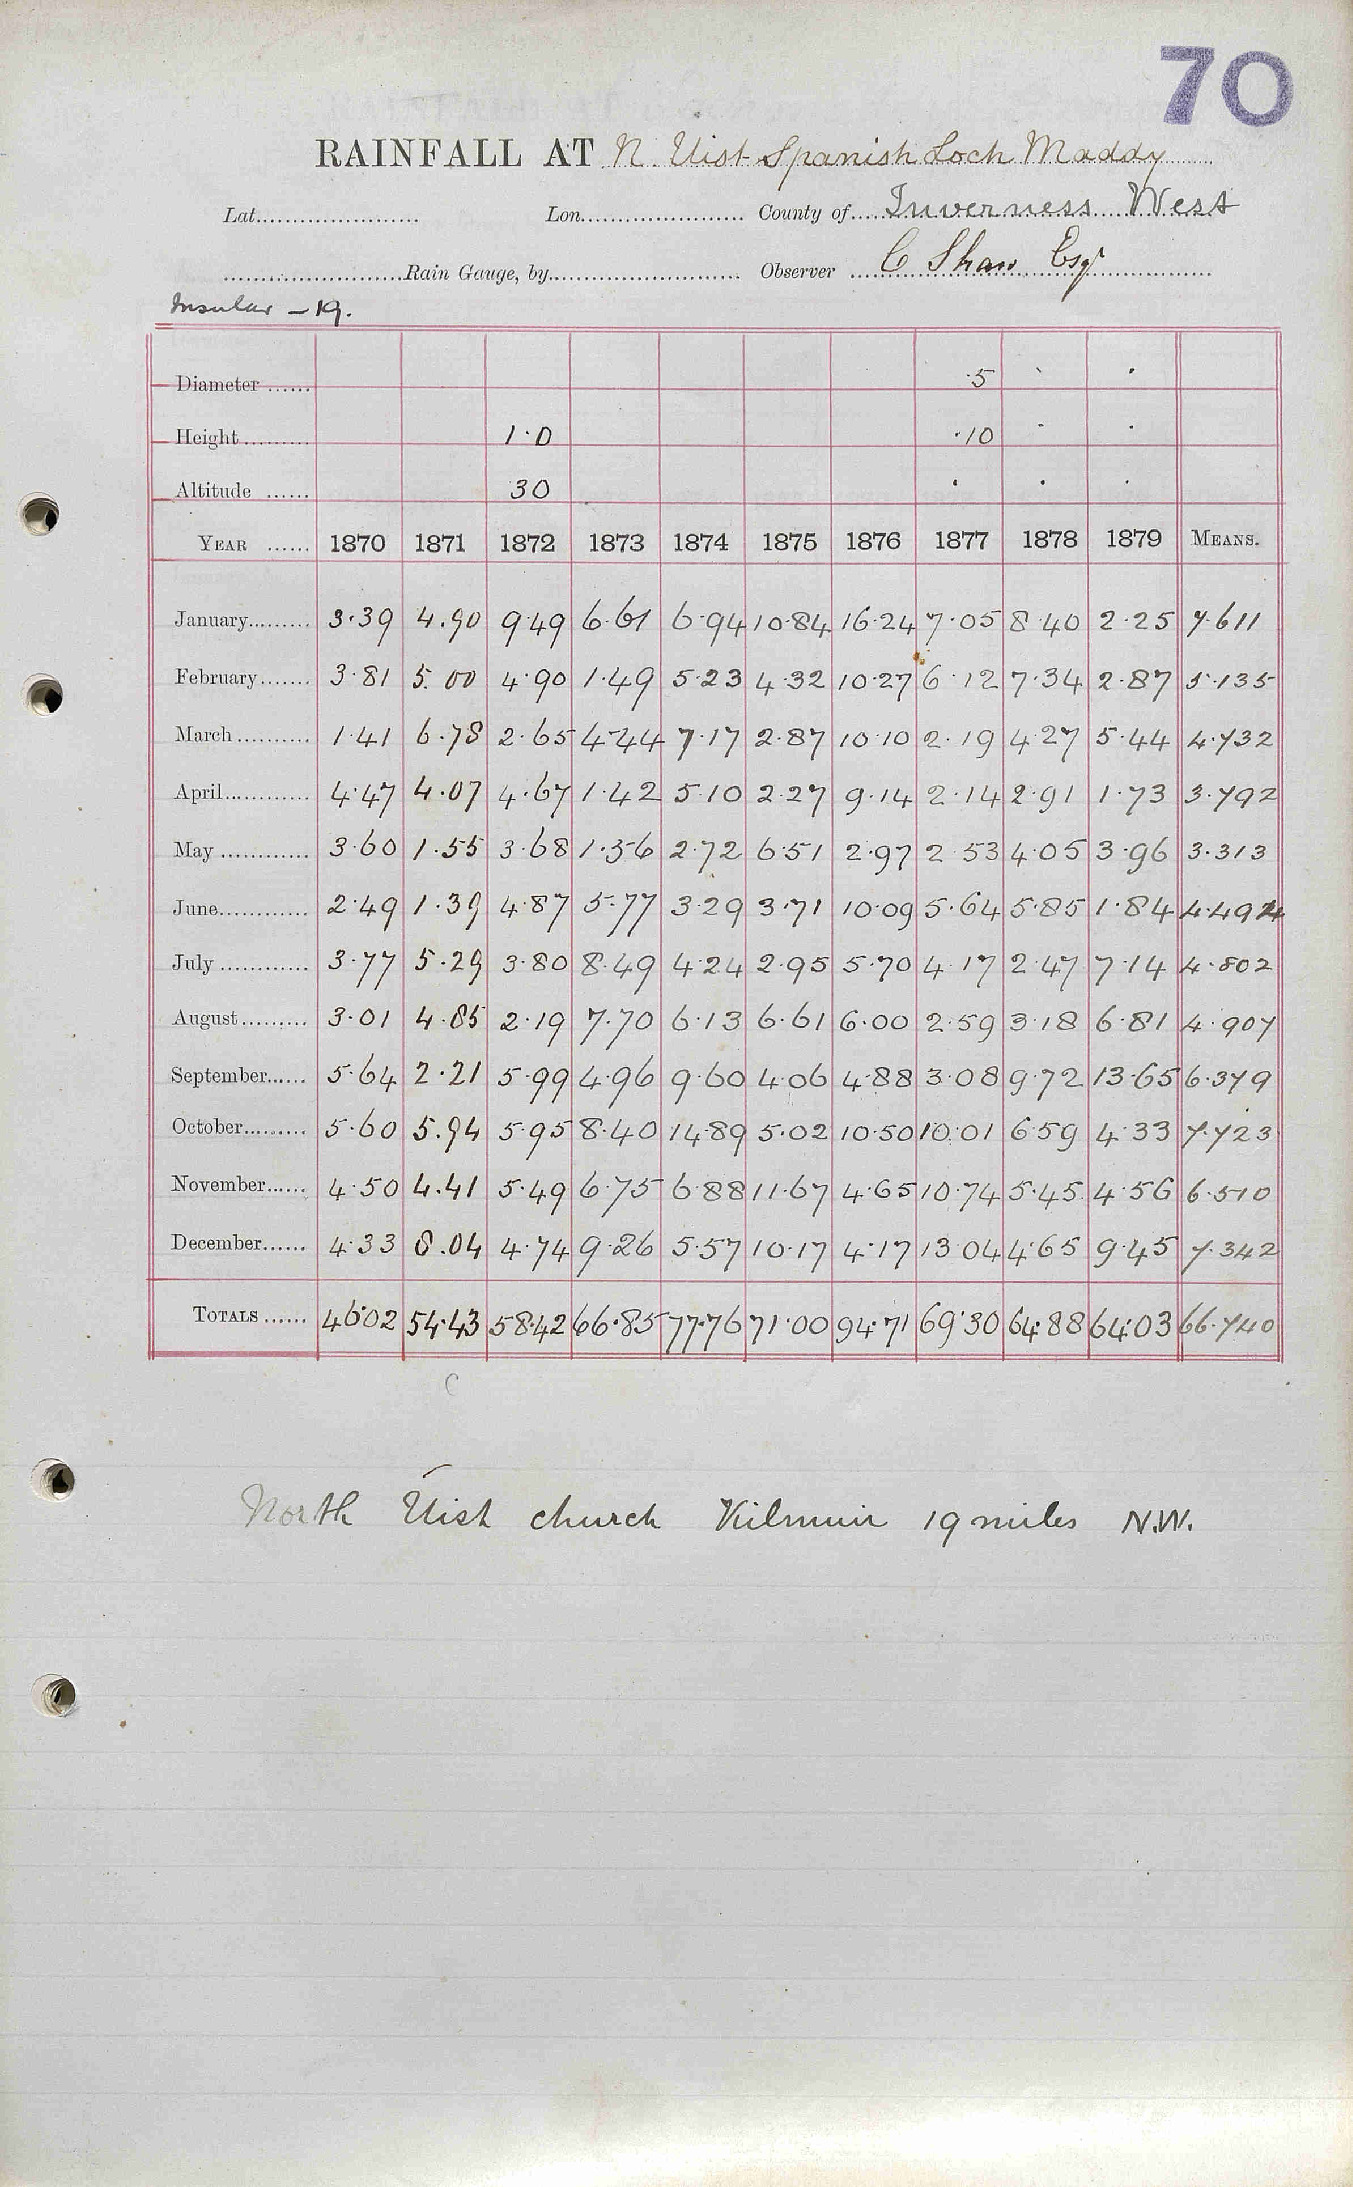 70
RAINFALL AT N. Uist Spanish Loch Maddy
Lat. Lon. County of Inverness West
Rain Gauge, by Observer C Shaw Esqr
Insular – 19.
Diameter 5
Height 1·0 ·10
Altitude 30
YEAR 1870 1871 1872 1873 1874 1875 1876 1877 1878 1879 MEANS.
January 3·39 4.90 9·49 6·61 6·94 10·84 16·24 7·05 8·40 2·25 7·611
February 3·81 5.00 4·90 1·49 5·23 4·32 10·27 6·12 7·34 2·87 5·135
March 1·41 6·78 2·65 4·44 7·17 2·87 10·10 2·19 4·27 5·44 4·732
April 4·47 4.07 4·67 1·42 5·10 2·27 9·14 2·14 2·91 1·73 3·792
May 3·60 1·55 3·68 1·56 2·72 6·51 2·97 2·53 4·05 3·96 3·313
June 2·49 1·39 4·87 5·77 3·29 3·71 10·09 5·64 5·85 1·84 4·494
July 3·77 5·29 3·80 8·49 4·24 2·95 5·70 4·17 2·47 7·14 4·802
August 3·01 4·85 2·19 7·70 6·13 6·61 6·00 2·59 3·18 6·81 4·907
September 5·64 2·21 5·99 4·96 9·60 4·06 4·88 3·08 9·72 13·65 6·379
October 5·60 5.94 5·95 8·40 14·89 5·02 10·50 10·01 6·59 4·33 7·723
November 4·50 4.41 5·49 6·75 6·88 11·67 4·65 10·74 5·45 4·56 6·510
December 4·33 8.04 4·74 9·26 5·57 10·17 4·17 13·04 4·65 9·45 7·342
TOTALS 46·02 54·43 58·42 66·85 77·76 71·00 94·71 69·30 64·88 64·03 66·740
C
North Uist church Kilmuir 19 miles N.W.